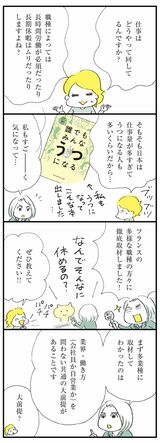 仕事は
どうやって回して
るんですか？
職種によっては
長時間労働が必須だったり
長期休暇はムリだったり
しますよね？
そもそも日本は
仕事量が多すぎて
うつになる人も
多いくらいだから…
誰でも
みんな
うつ
になる
私も
うつに
なって
こんな本
出ました
私もすごーーーく
気になって…！
フランスの
多様な職種の方々に
徹底取材しました！
なんでそんなに
休めるの？
ぜひ教えて
ください!!
まず多業種に
取材して
わかったのは
業界、働き方
（会社員か自営業か）を
問わない共通の大前提が
あることです
大前提？